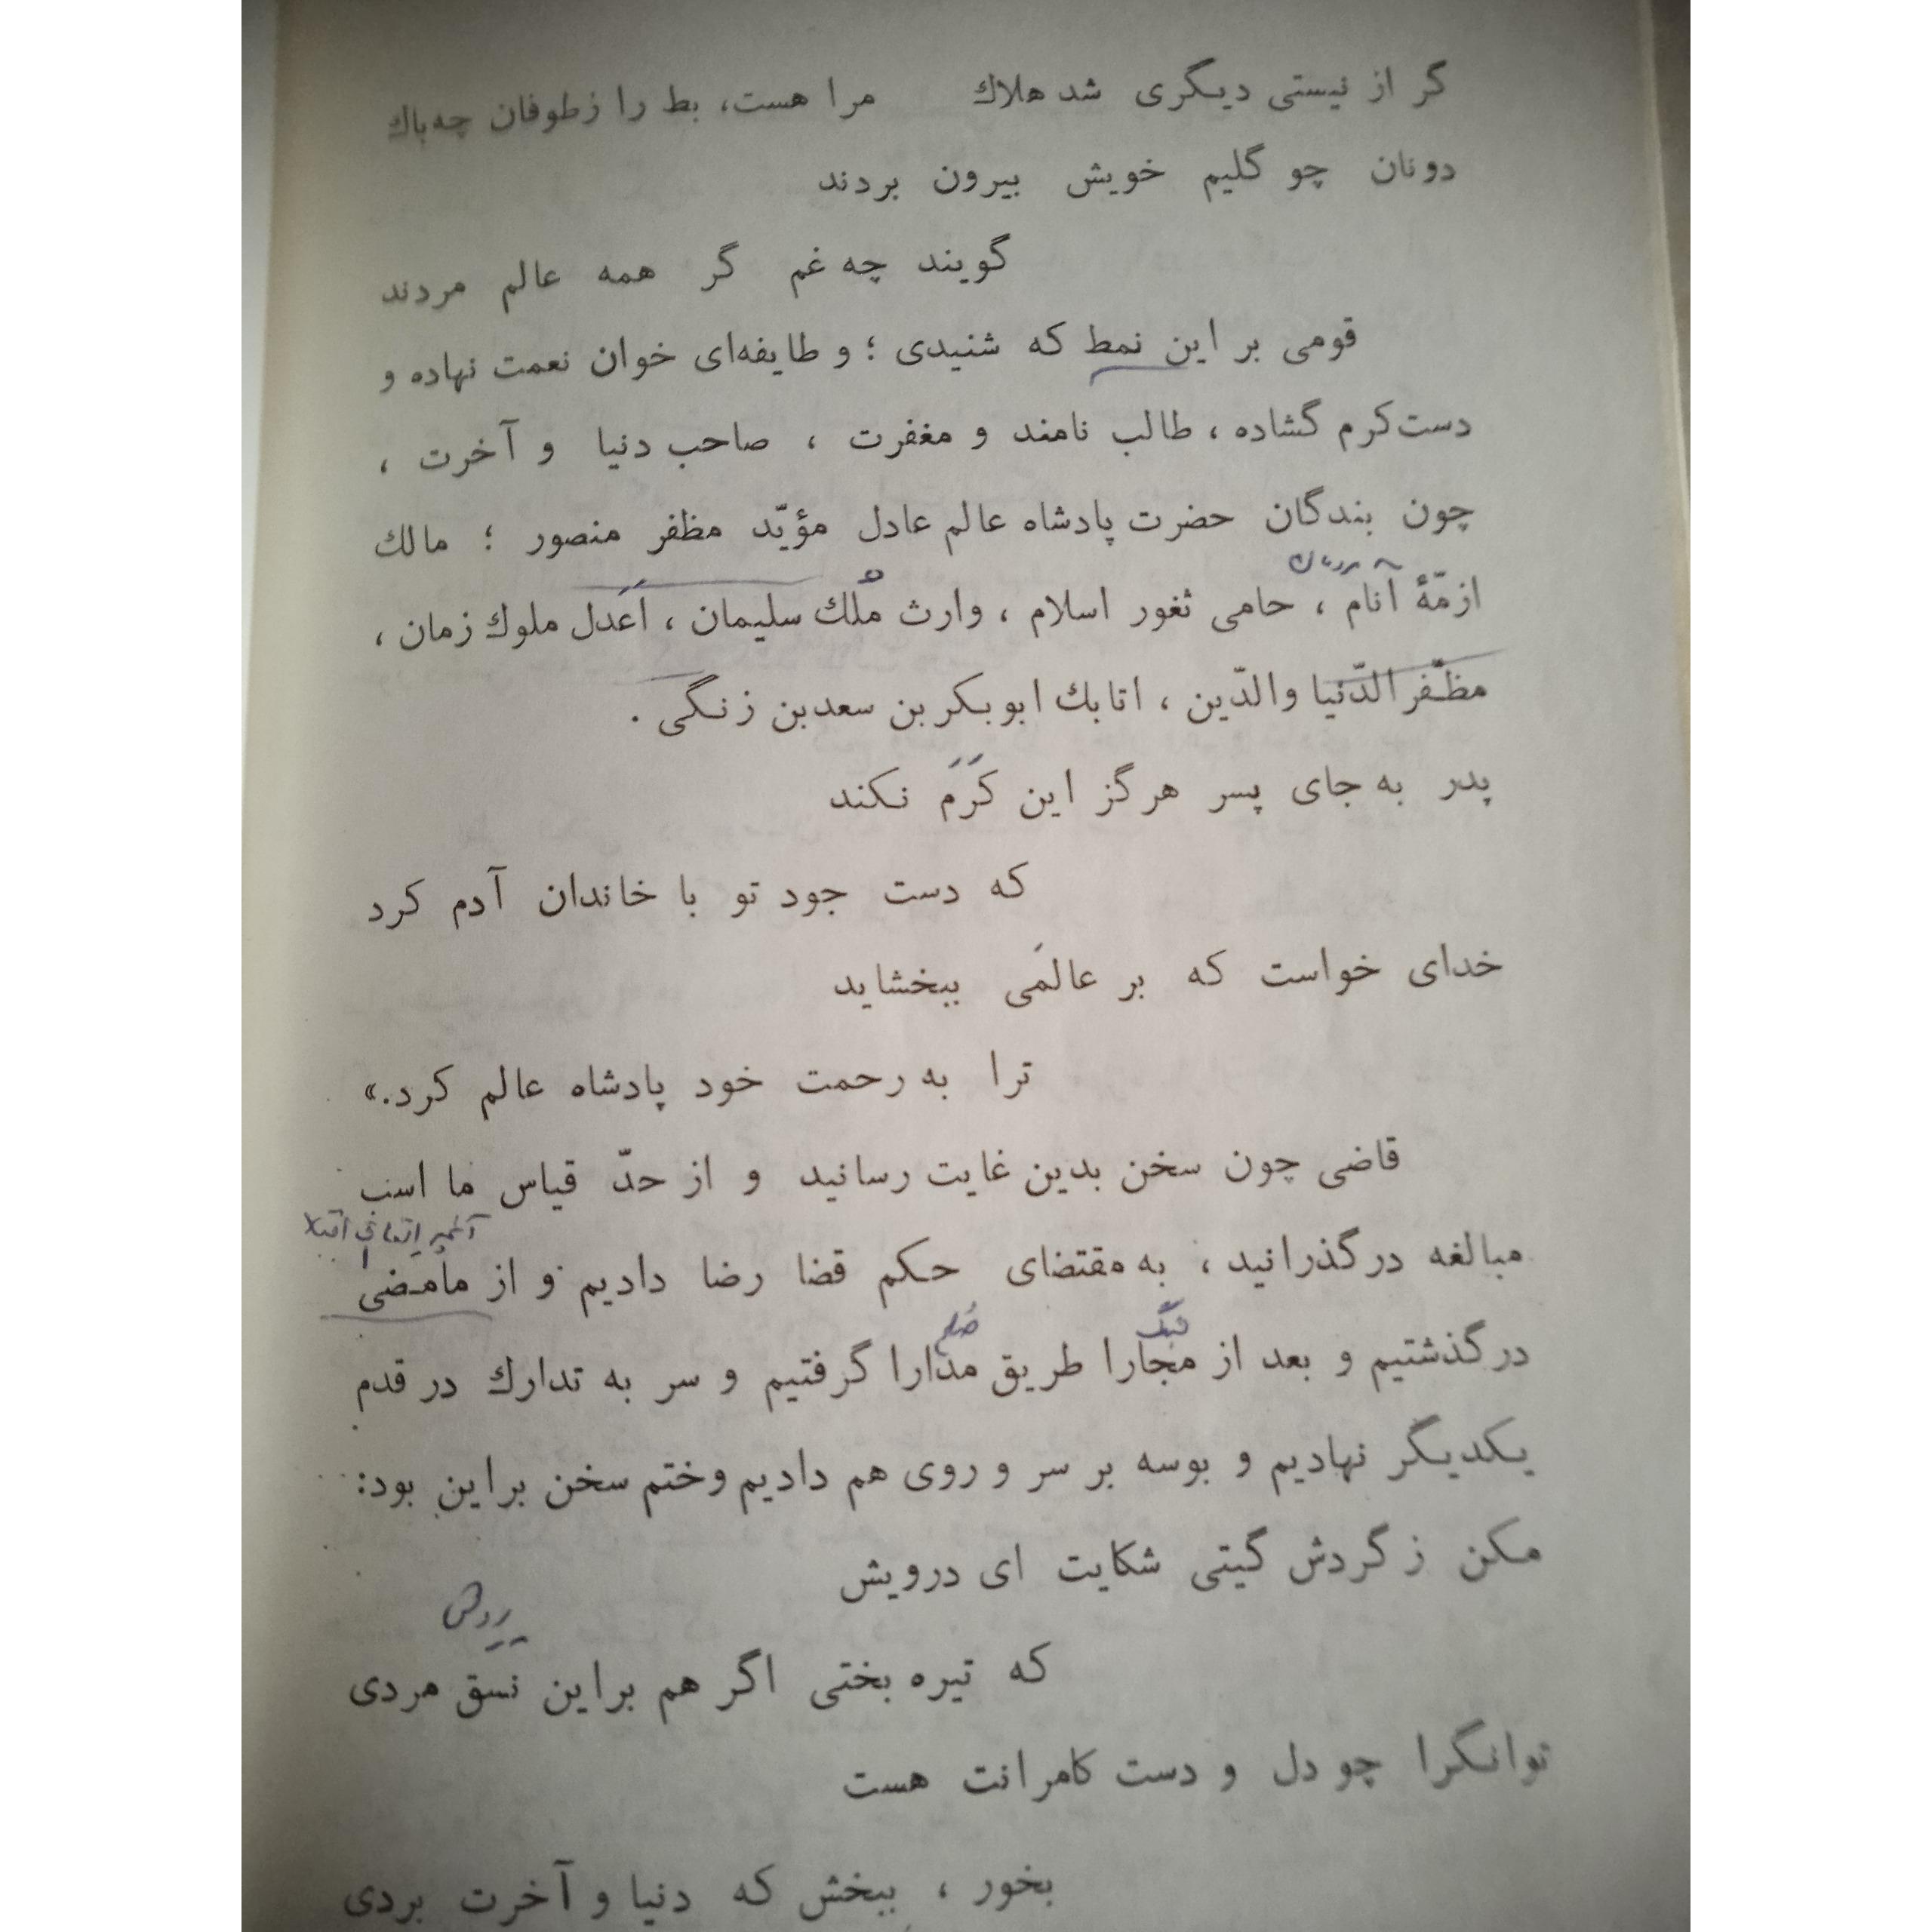 گر از نیستی دیگری شد هلاك مرا هست، بط را زطوفان چه‌باك
دونان چو گلیم خویش بیرون بردند
گویند چه غم گر همه عالم مردند
قومی بر این نمط که شنیدی ؛ و طایفه‌ای خوان نعمت نهاده و
دست‌کرم گشاده ، طالب نامند و مغفرت ، صاحب دنیا و آخرت ،
چون بندگان حضرت پادشاه عالم عادل مؤیّد مظفر منصور ؛ مالك
ازمّهٔ اَنام ، حامی ثغور اسلام ، وارث مُلْك سلیمان ، اَعدَل ملوك زمان ،
مظفّرالدّنیا والدّین ، اتابك ابوبکر بن سعدبن زنگی .
پدر به جای پسر هرگز این کَرَم نکند
که دست جود تو با خاندان آدم کرد
خدای خواست که بر عالمَی ببخشاید
ترا به رحمت خود پادشاه عالم کرد.»
قاضی چون سخن بدین غایت رسانید و از حدّ قیاس ما اسب
مبالغه درگذرانید ، به مقتضای حکم قضا رضا دادیم و از مامَضی
صُلح
درگذشتیم و بعد از مجارا طریق مدارا گرفتیم و سر به تدارك در قدم
یکدیگر نهادیم و بوسه بر سر و روی هم دادیم وختم سخن براین بود:
مکن ز گردش گیتی شکایت ای درویش
روش
که تیره بختی اگر هم براین نسق مردی
توانگرا چو دل و دست کامرانت هست
بخور ، ببخش که دنیا و آخرت بردی